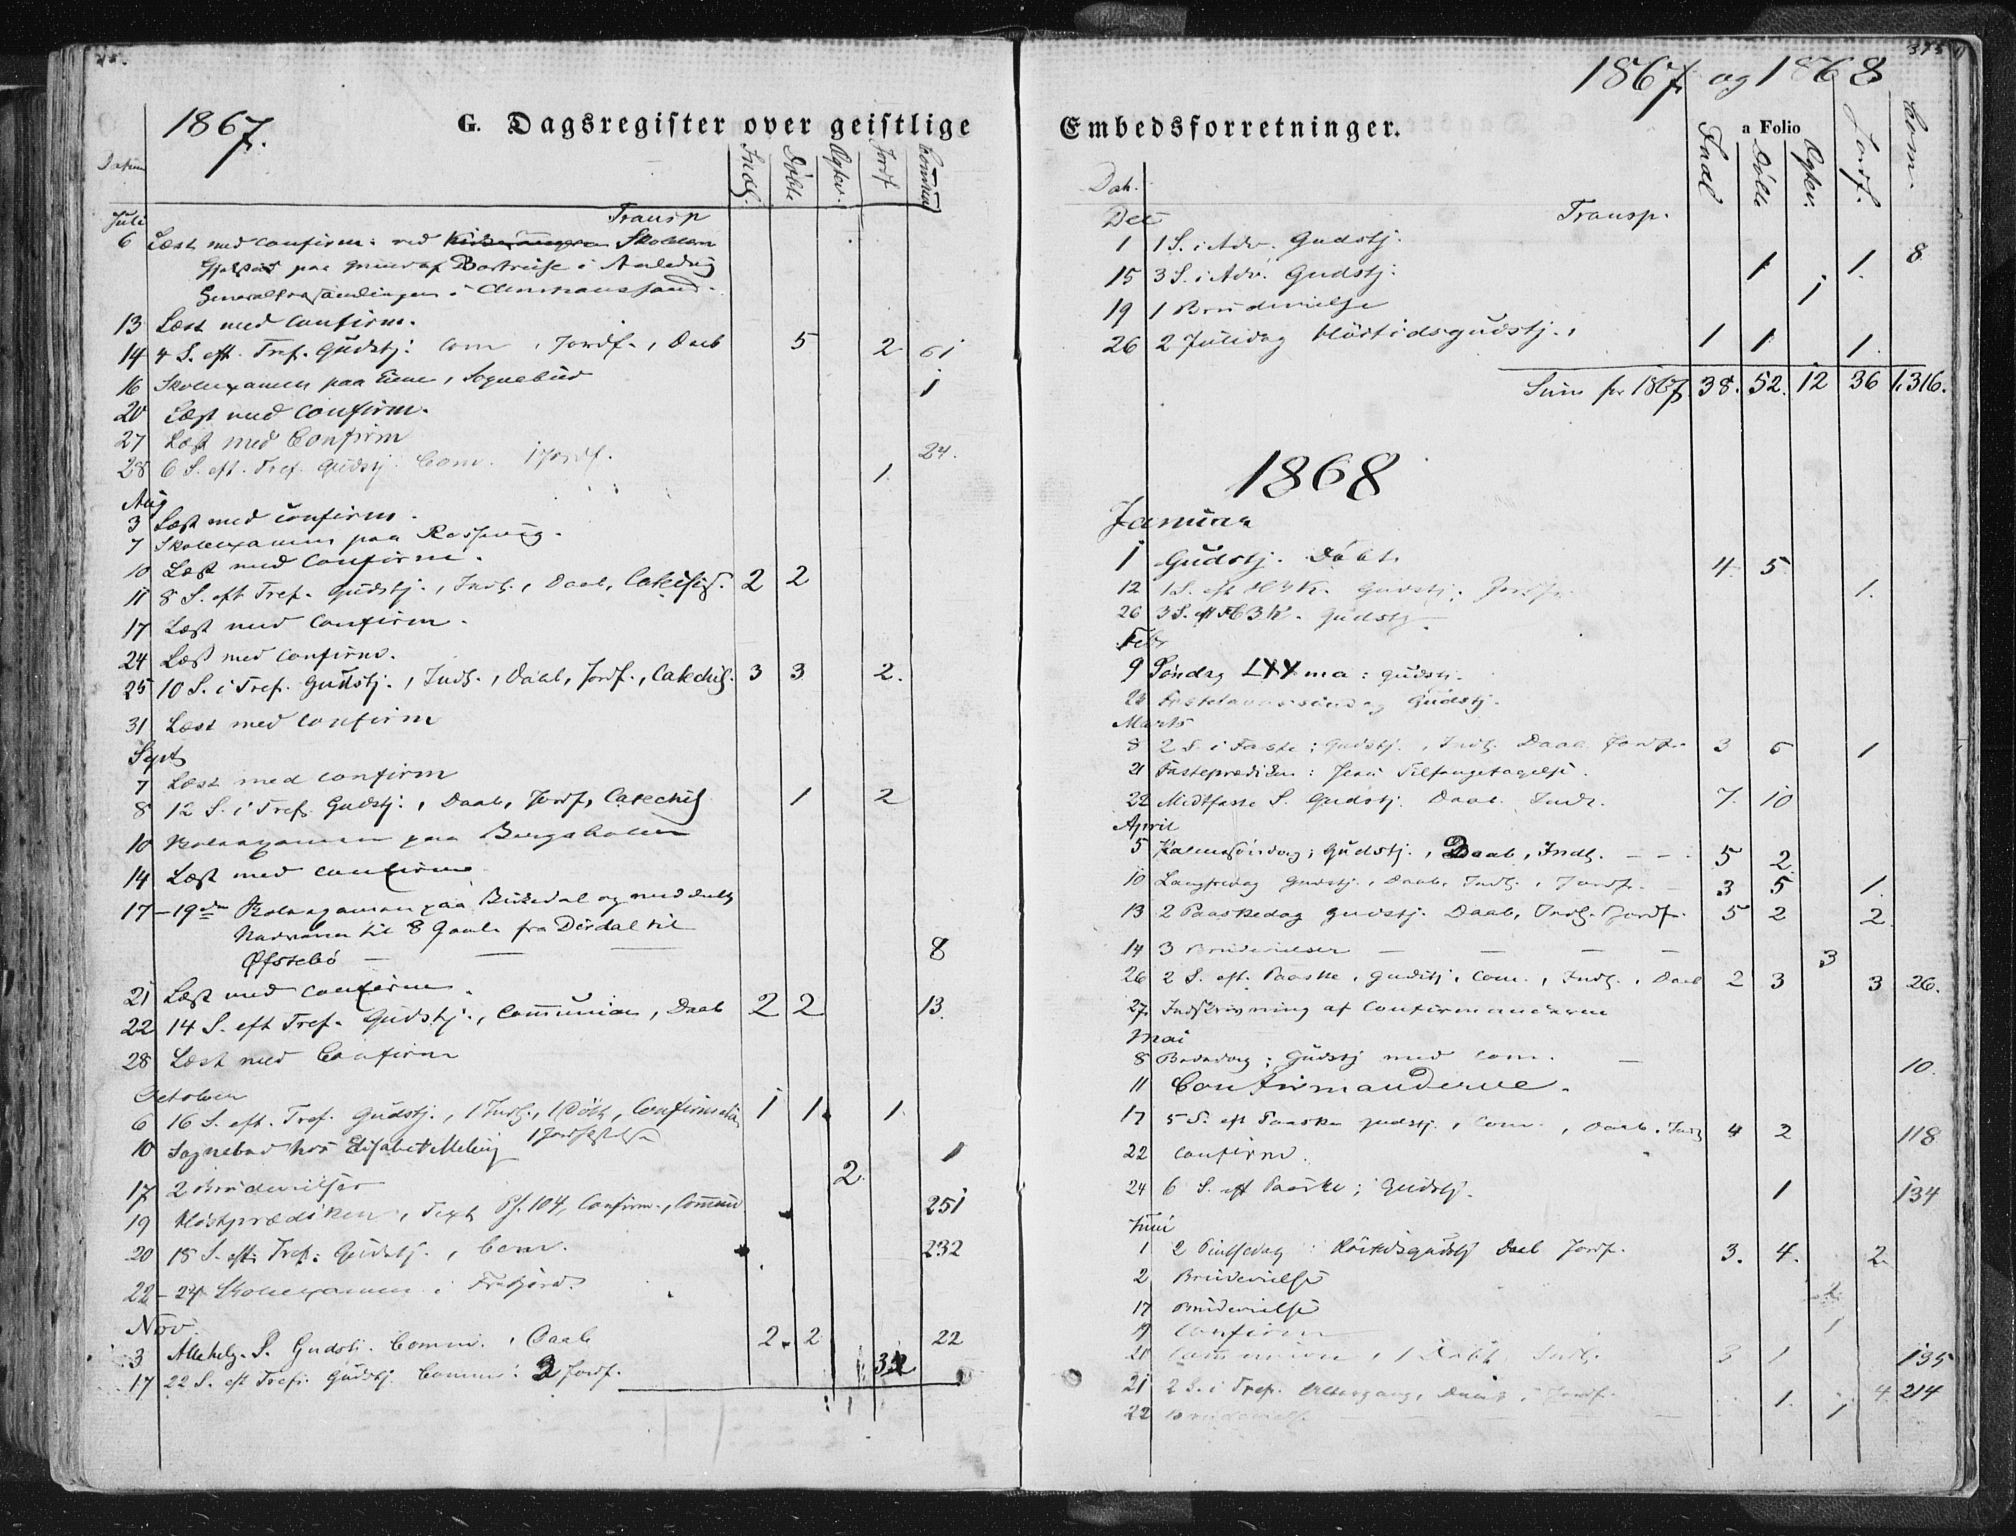 1867.
G. Dagsregister over geistlige
Datum Indl. Døbte Ogtev. Jordf. Commun
Juli Transp
6 Læst med confirm. ved Skolen
paa Grund af Bortreise i Anledning
Generalforsamlingen i Christianssand.
13 Læst med confirm.
14 4 S. eft. Tref. Gudstj. Com, Jordf., Daab 5 2 61
16 Skoleexamen paa Eiene, Sognebud 1
20 Læst med confirm.
27 Læst med Confirm
28 6 S. eft. Tref. Gudstj. Com. 1 Jordf. 1. 24.
Aug
3 Læst med confirm.
7 Skoleexamen paa
10 Læst med confirm.
11 8 S. eft Tref. Gudstj., Indl., Daab, Catechis. 2 2
17 Læst med confirm.
24 Læst med confirm.
25 10 S. i Tref. Gudstj., Indl., Daab, Jordf., Catechis. 3 3 2.
31 Læst med confirm
Sept
7 Læst med confirm
8 12 S. i Tref. Gudstj., Daab, Jordf, Catechis 1 2
10 Skoleexamen paa Bergsholm
14 Læst med confirm
17-19de Skoleexamen paa og meddelt
til 8 fra Dirdal til
Øfstebø — — 8
21 Læst med confirm.
22 14 S. eft Tref. Gudstj., Communion, Daab 2 2 13.
28 Læst med Confirm
October
6 16 S. eft. Tref. Gudstj., 1 Indl., 1 Døbt, Confirmation 1 1. 1.
1 Jordfæstelse
10 Sognebud hos Elisabet Meling 1
17 2 Brudevielser 2.
19 Høstprædiken, Text Ps. 104, Confirm., Commun 251
20 18 S. eft. Tref. Gudstj., Com. 232
22-24 Skoleexamen i Frafjord.
Nov.
3 Allehelg. S. Gudstj. Comm., Daab 2. 2 22
17 22 S. eft Tref. Gudstj. Comm. 3 Jordf.
375
1867 og 1868
Embedsforretninger.
a Folio
Dat. Indl Døbte Ogtev. Jordf. Com.
Dec Transp.
1 1 S. i Adv. Gudstj. 8
15 3 S. i Adv. Gudstj. 1 1.
19 1 Brudevielse 1
26 2 Juledag Høitidsgudstj., 1 1. 1.
Sum for 1867 38. 52. 12 36 1,316.
1868
Januar
1 Gudstj. Døbt. 4. 5.
12 1 S. eft H 3 K. Gudstj. Jordf. 1.
26 3 S. eft H 3 K. Gudstj
Febr
9 Søndag LXXma: Gudstj.
23 Fastelavnssøndag Gudstj.
Marts
8 2 S. i Faste: Gudstj., Indl. Daab Jordf. 3 6 1
21 Fasteprædiken: Jesu Tilfangetagelse.
22 Midtfaste S. Gudstj. Daab. Indl. 7. 10
April
5 Palmesøndag; Gudstj., Daab, Indl. — — 5 2.
10 Langfredag Gudstj., Daab, Indl., Jordf. — 3 5 1.
13 2 Paaskedag Gudstj. Daab, Indl. Jordf. 5 2 2.
14 3 Brudevielser — — — — 3
26 2 S. eft. Paaske, Gudstj., Com., Indl., Daab 2 3 3 26.
27. Indskrivning af Confirmanderne
Mai
8 Bededag; Gudstj med Com. — 10.
11 Confirmanderne.
17 5 S. eft Paaske Gudstj., Com., Daab, Indl 4 2 118
22 Confirm.
24 6 S. eft Paaske; Gudstj. 1 134
Juni
1 2 Pintsedag: Høitidsgudstj Daab Jordf. 3. 4. 2.
2 Brudevielse 2
17 Brudevielse 1
19 Confirm
20 Communion, 1 Døbt Indl. 3 1 135
21 2 S. i Tref. Altergang, Daab, Jordf. 1. 4. 214
22 Brudevielse 1